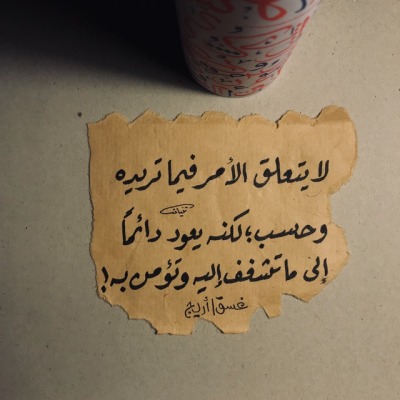 لا يتعلق الأمر فيما تريده
وحسب؛ لكنه يعود دائماً
إلى ما تشغف إليه وتؤمن به!
غسق أريج